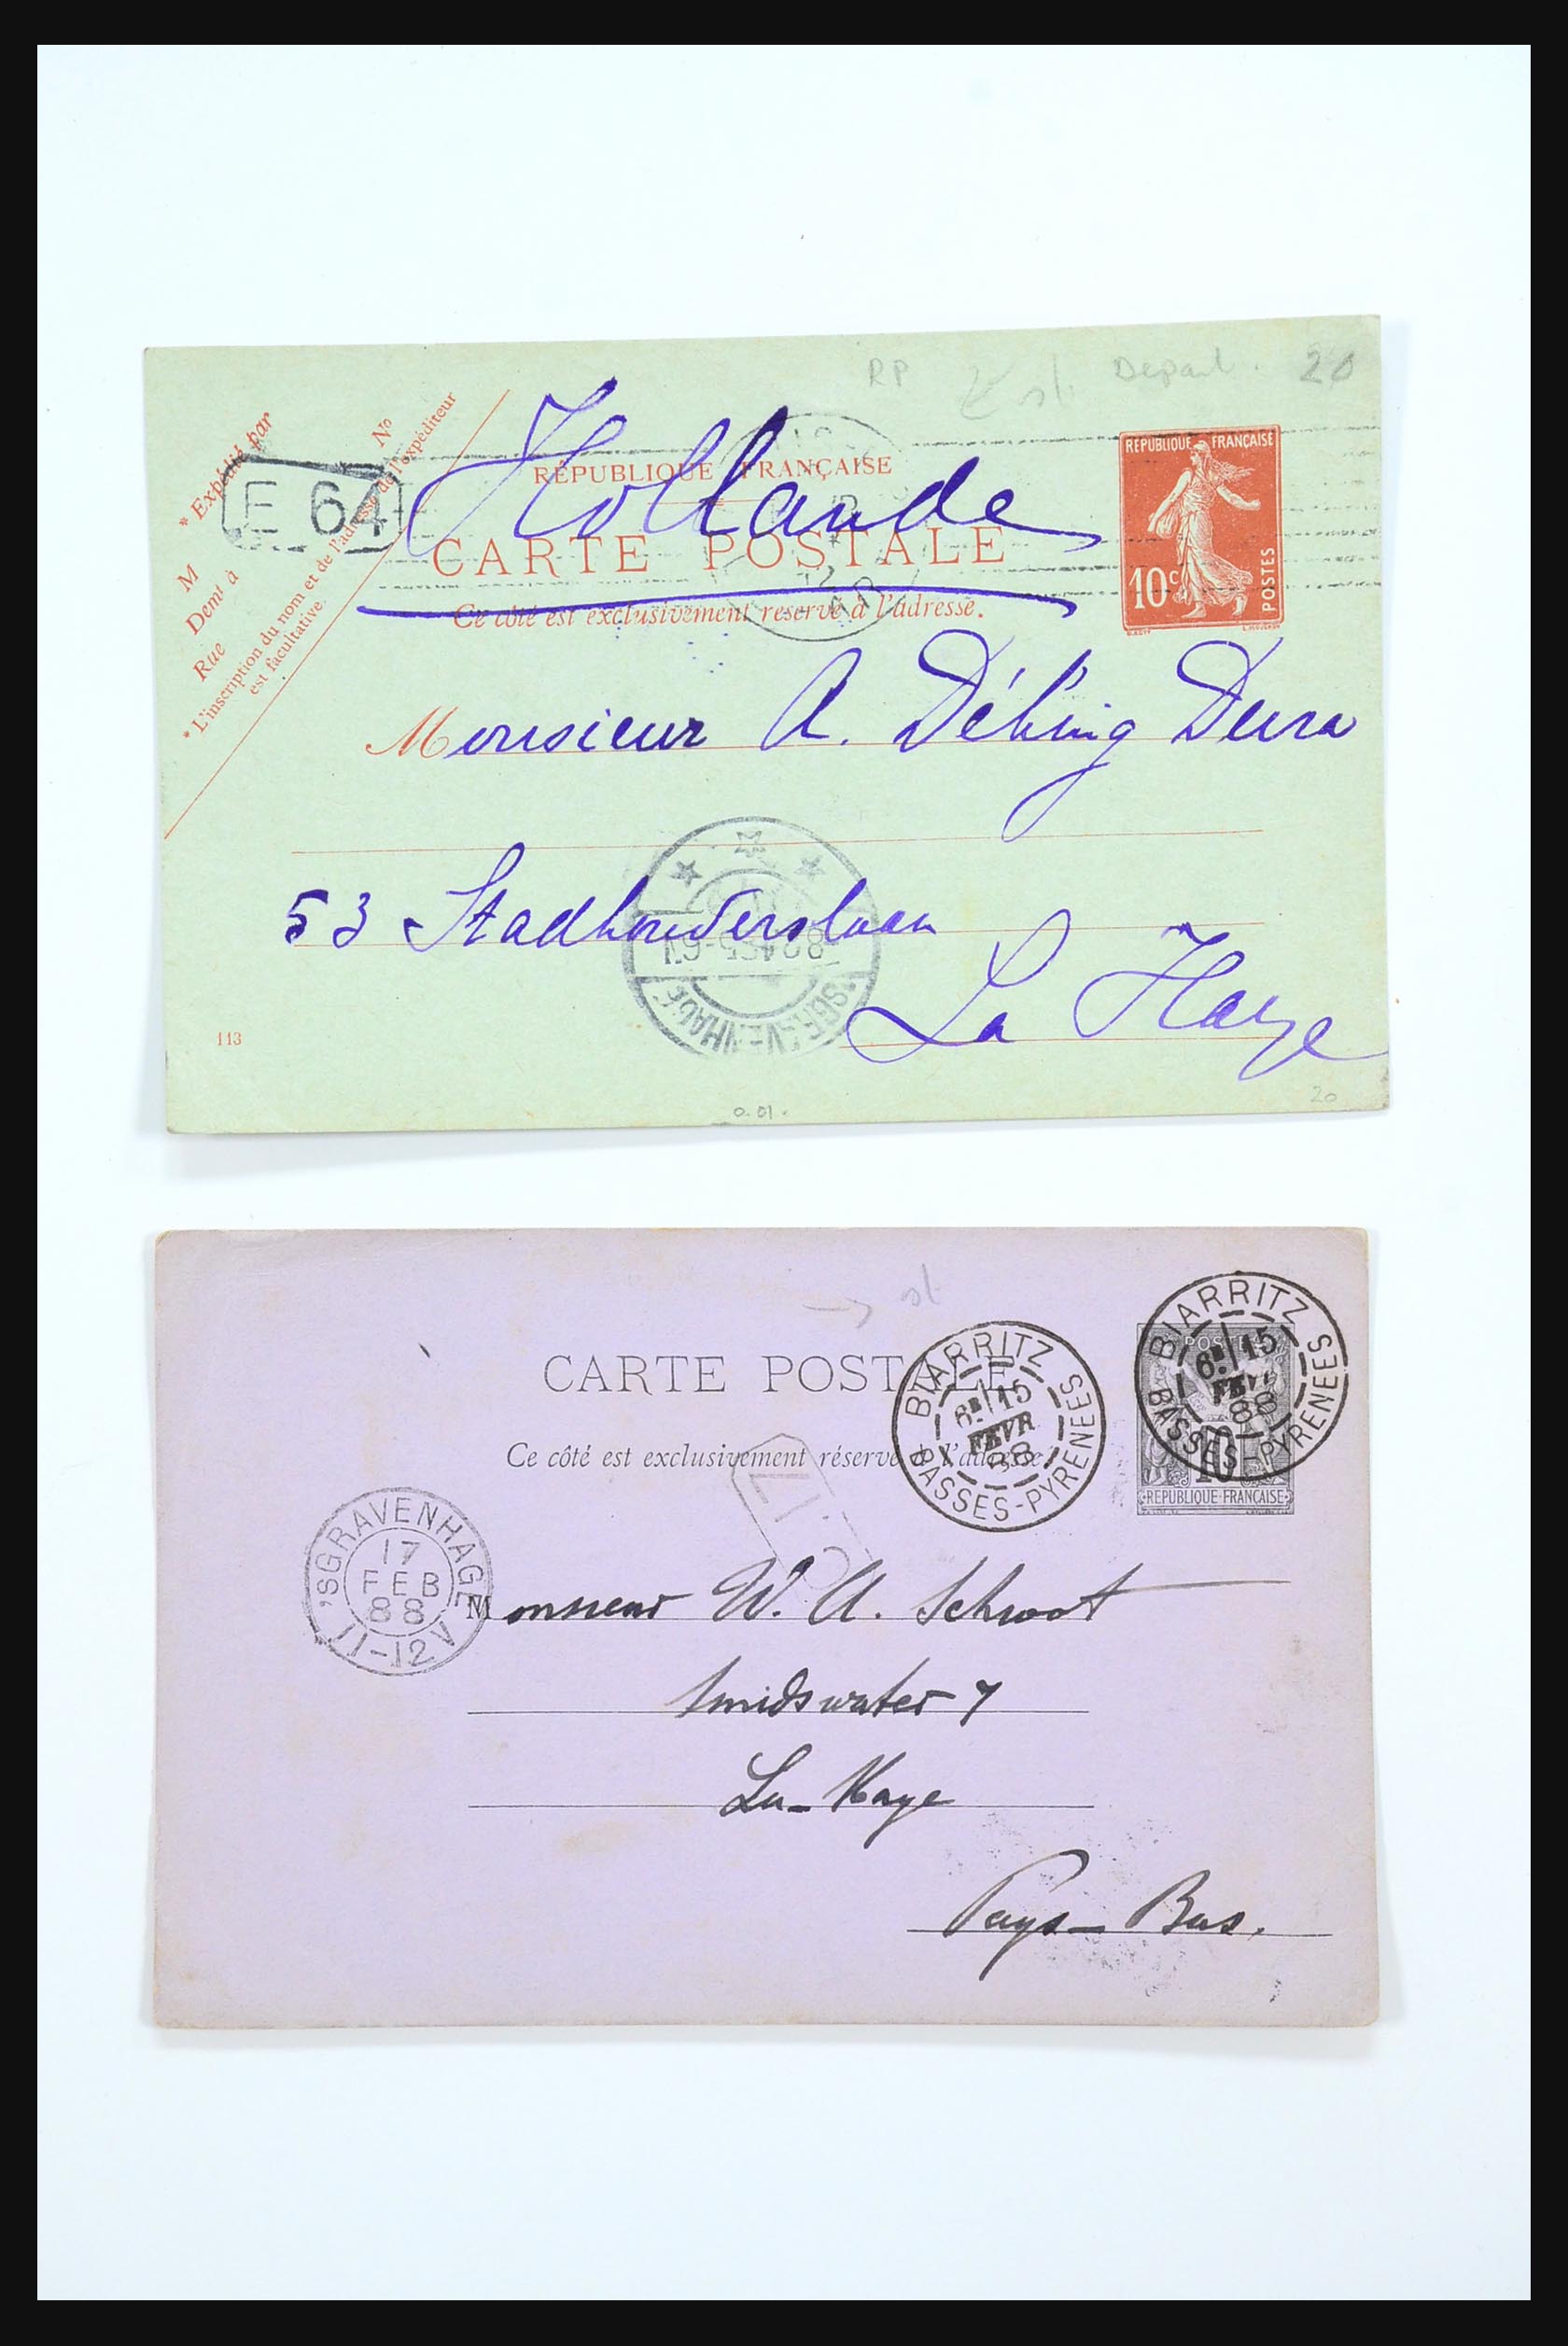 RP Depart. 20
* Expédié par
M
Demt à
Rue
No
* L'inscription du nom et de l'adresse de l'expéditeur
est facultative.
E 64
Hollande
RÉPUBLIQUE FRANÇAISE
CARTE POSTALE
Ce côté est exclusivement reservé à l'adresse.
REPUBLIQUE FRANÇAISE
10c
POSTES
Monsieur A.
53 Stadhouderslaan
La Haye
'SGRAVENHAGE
113
0.01.
20
CARTE POSTALE
Ce côté est exclusivement réservé à l'adresse
BIARRITZ
6E/15
FEVR
88
BASSES-PYRENEES
BIARRITZ
6E/15
FEVR
88
BASSES-PYRENEES
POSTES
10
REPUBLIQUE FRANÇAISE
'SGRAVENHAGE
17
FEB
88
11-12V
Monsieur W. A. Schroot
Smidswater 7
La-Haye
Pays-Bas.